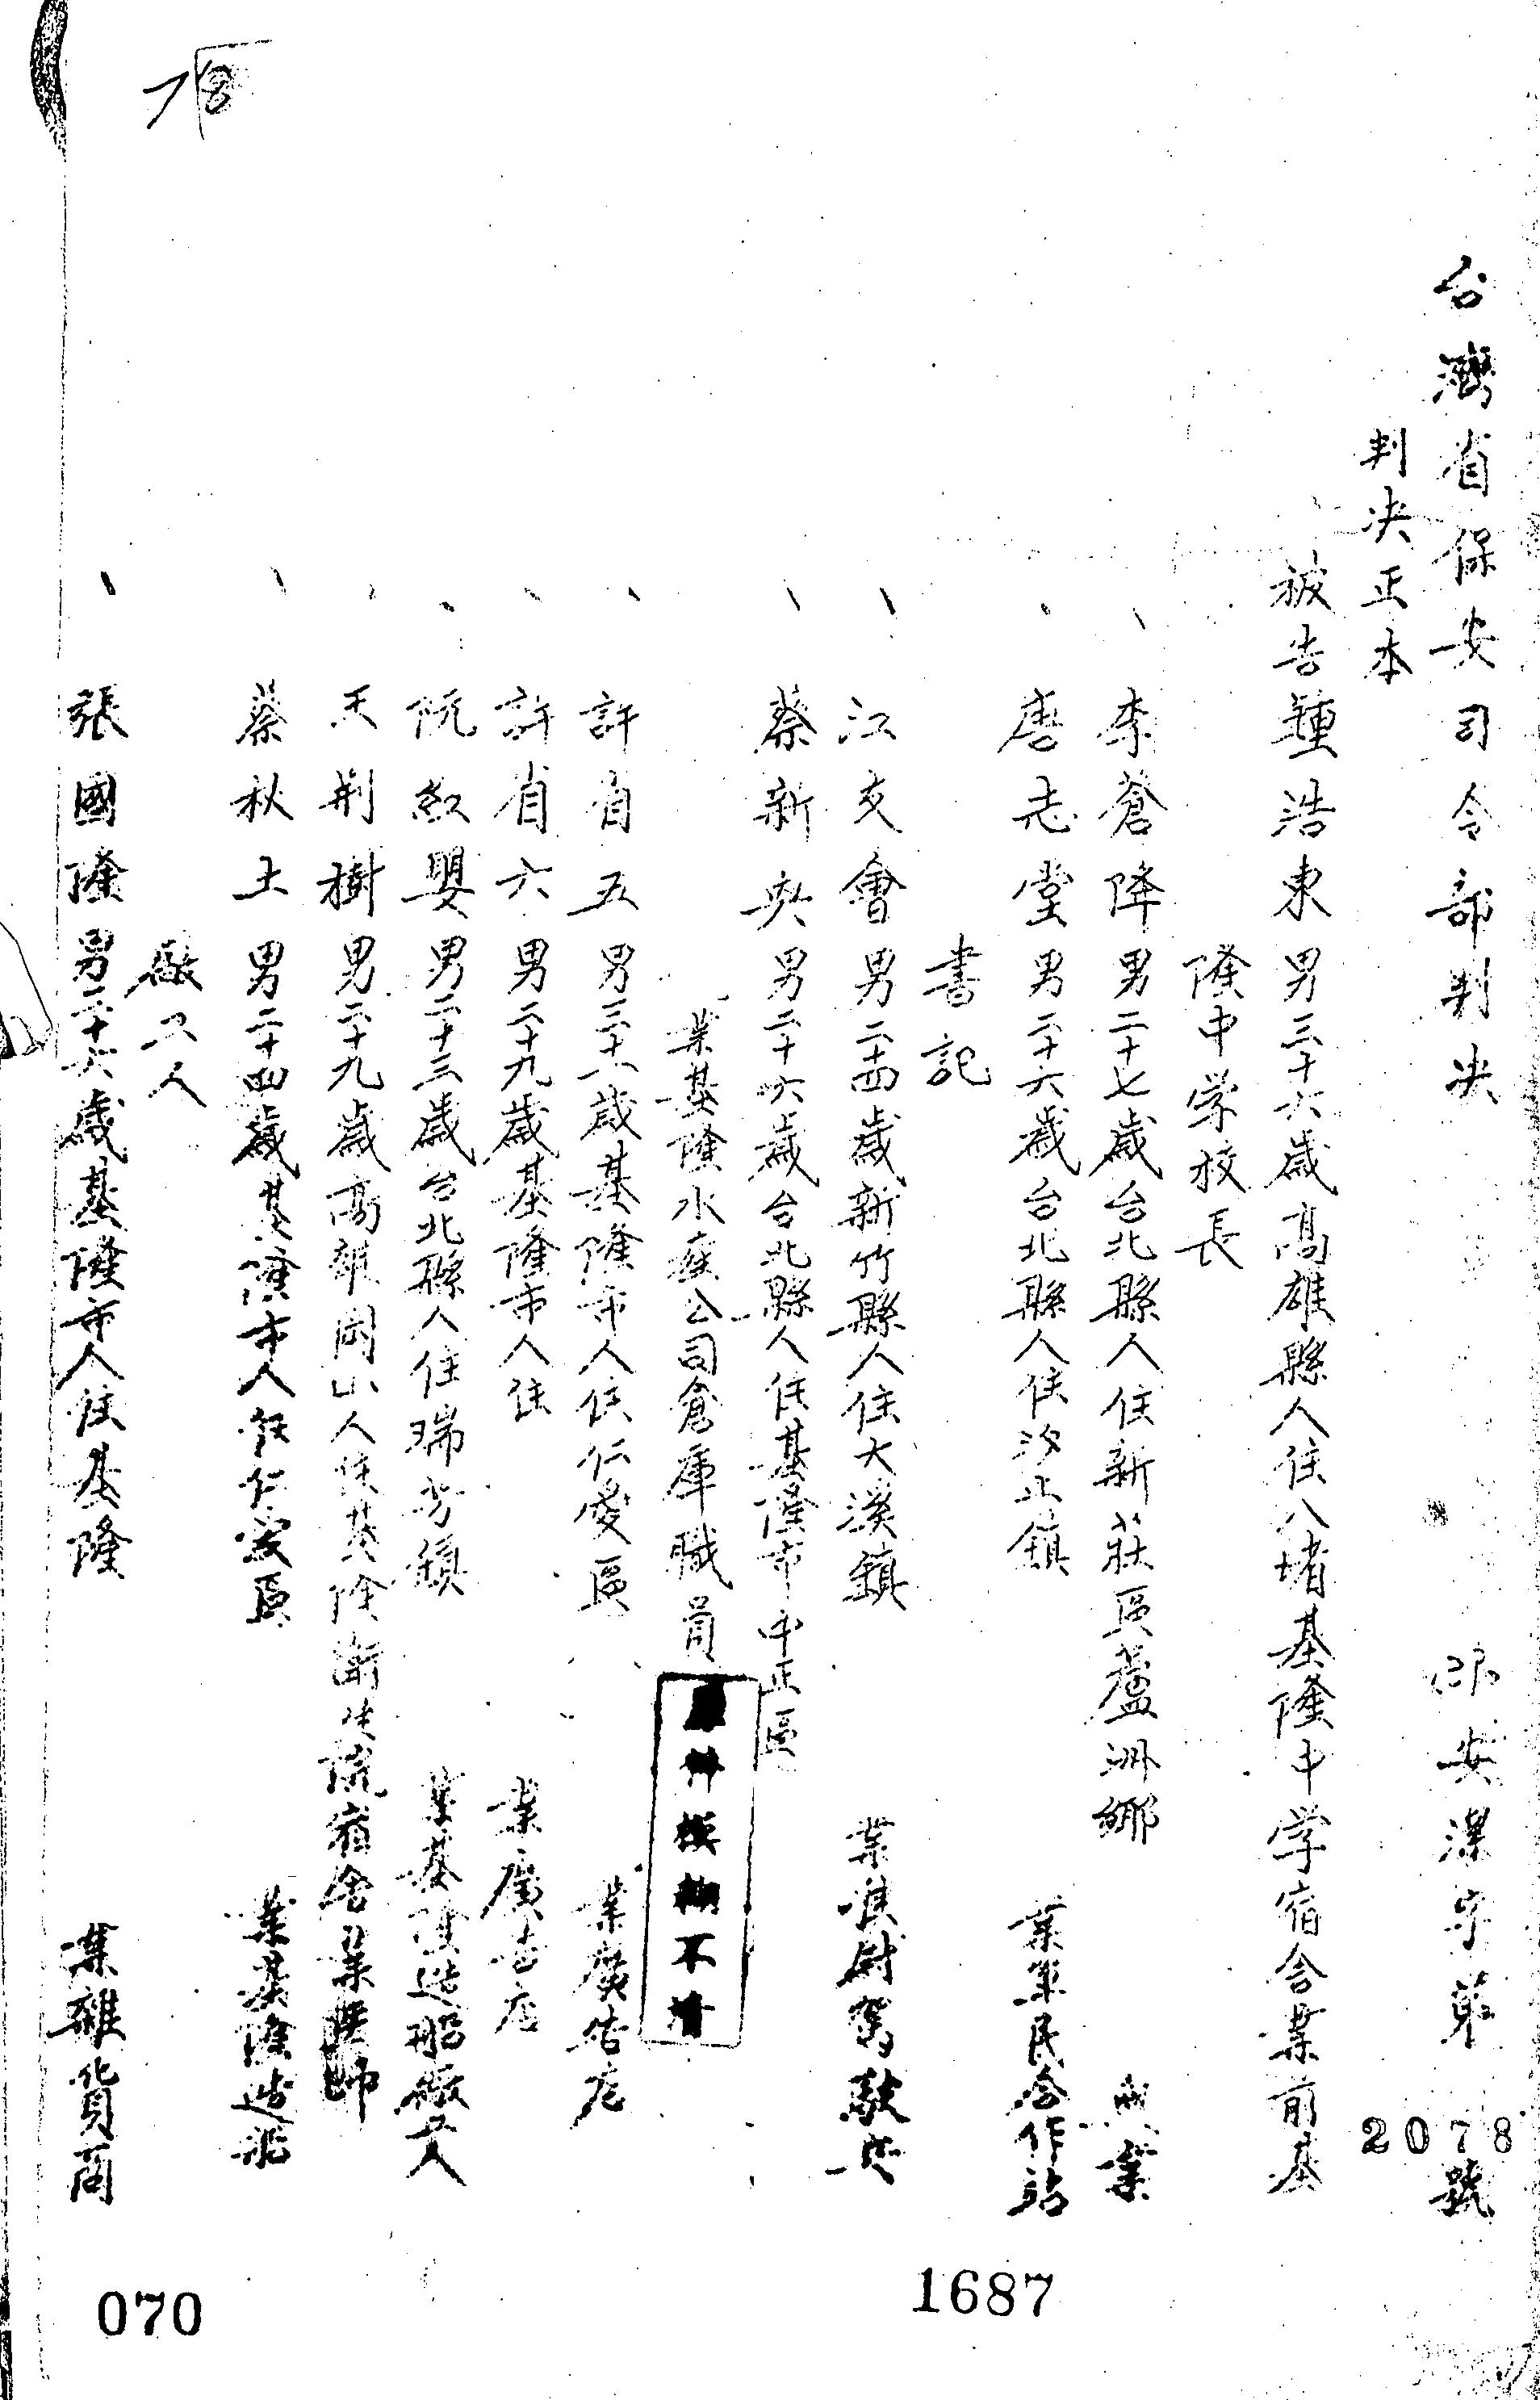 台灣省保安司令部判決 安潔字第2078號
判決正本
被告鍾浩東男三十六歲高雄縣人住八堵基隆中学宿舍業前基
隆中学校長
李蒼降男二十七歲台北縣人住新莊區蘆洲鄉 業
唐志堂男二十六歲台北縣人住汐止鎮 業軍民合作站
書記
江支會男二十四歲新竹縣人住大溪鎮 業 駕駛兵
蔡新 男二十六歲台北縣人住基隆市中正區
業基隆水產公司倉庫職員
原件模糊不清
許省五男三十一歲基隆市人住仁愛區 業廣告店
許省六男二十九歲基隆市人住 業廣告店
阮紅嬰男二十三歲台北縣人住瑞芳鎮 業基隆造船廠工人
王荆樹男二十九歲高雄岡山人住基隆衛生院宿舍業 師
蔡秋土男二十四歲基隆市人住仁愛區 業基隆造船
廠工人
張國隆男二十六歲基隆市人住基隆 業雜貨商
78
1687
070